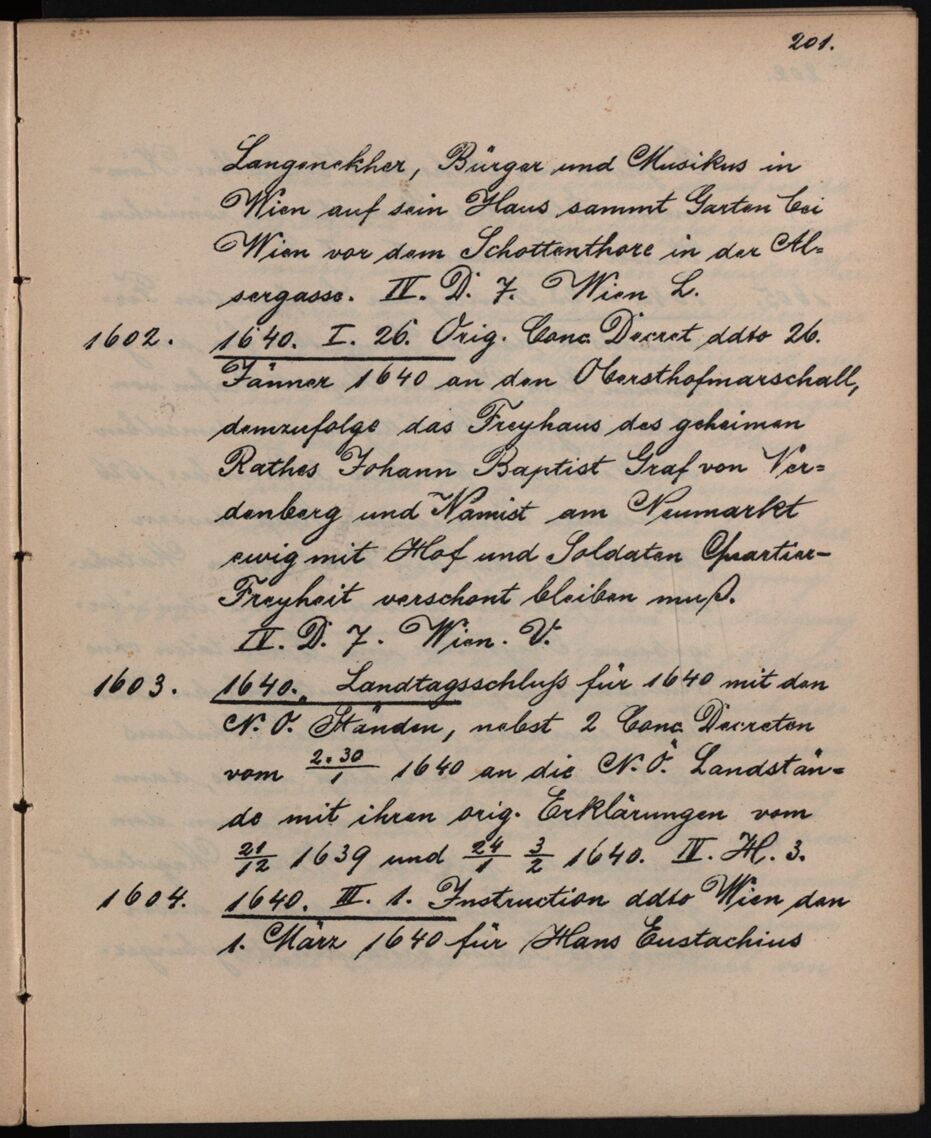 201.
Langenekher, Bürger und Musikus in
Wien auf sein Haus sammt Garten bei
Wien vor dem Schottenthore in der Al=
sergasse. IV. D. 7. Wien L.
1602. 1640. I. 26. Orig. Conc. Decret ddto 26.
Jänner 1640 an den Obersthofmarschall,
demzufolge das Freyhaus des geheimen
Rathes Johann Baptist Graf von Ver=
denberg und Namist am Neumarkt
ewig mit Hof und Soldaten Quartier-
Freyheit verschont bleiben muß.
IV. D. 7. Wien. V.
1603. 1640. Landtagsschluß für 1640 mit den
N. Ö. Ständen, nebst 2 Conc. Decreten
vom 2. 30/1 1640 an die N. Ö. Landstän=
de mit ihren orig. Erklärungen vom
21/12 1639 und 24/1 3/2 1640. IV. H. 3.
1604. 1640. III. 1. Instruction ddto Wien den
1. März 1640 für Hans Eustachius